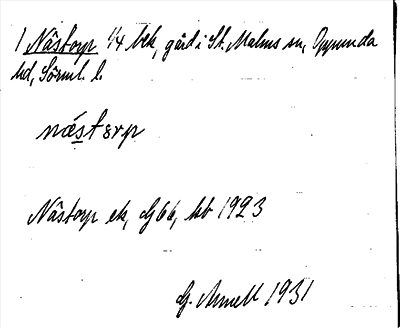 1 Nästorp 1/4 bek, gård i St. Malms sn, Oppunda
hd, Sörml. l.
næstɘrp
Nästorp ek, Gf 66, kb 1923
G. Arnell 1931